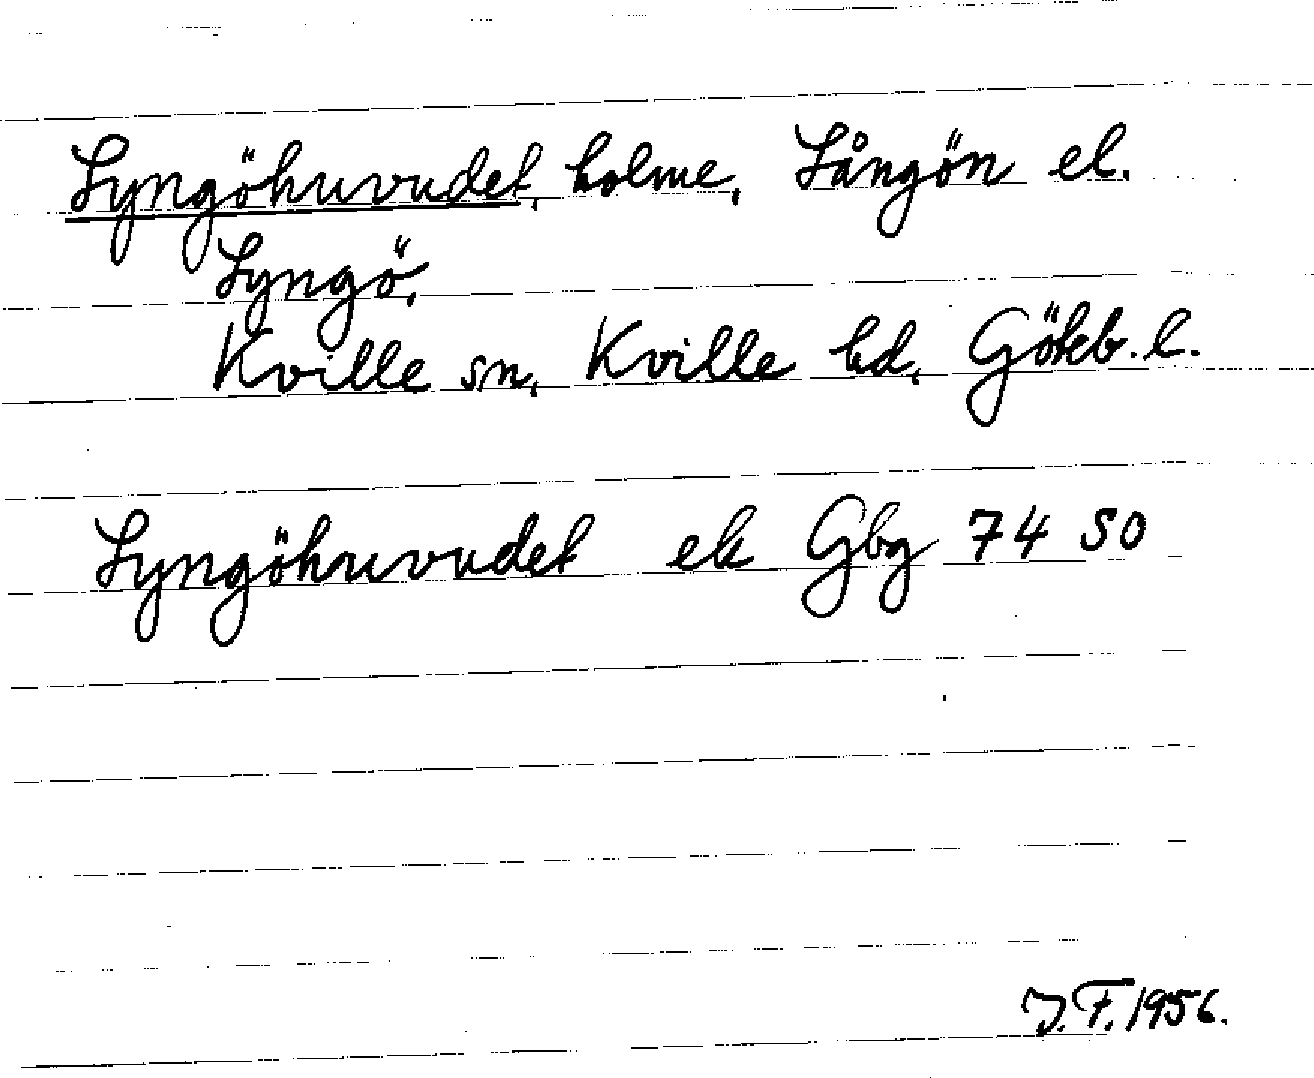 Lyngöhuvudet, holme, Långön el.
Lyngö,
Kville sn, Kville hd, Göteb. l.
Lyngöhuvudet ek Gbg 74 SO
J.F. 1956.